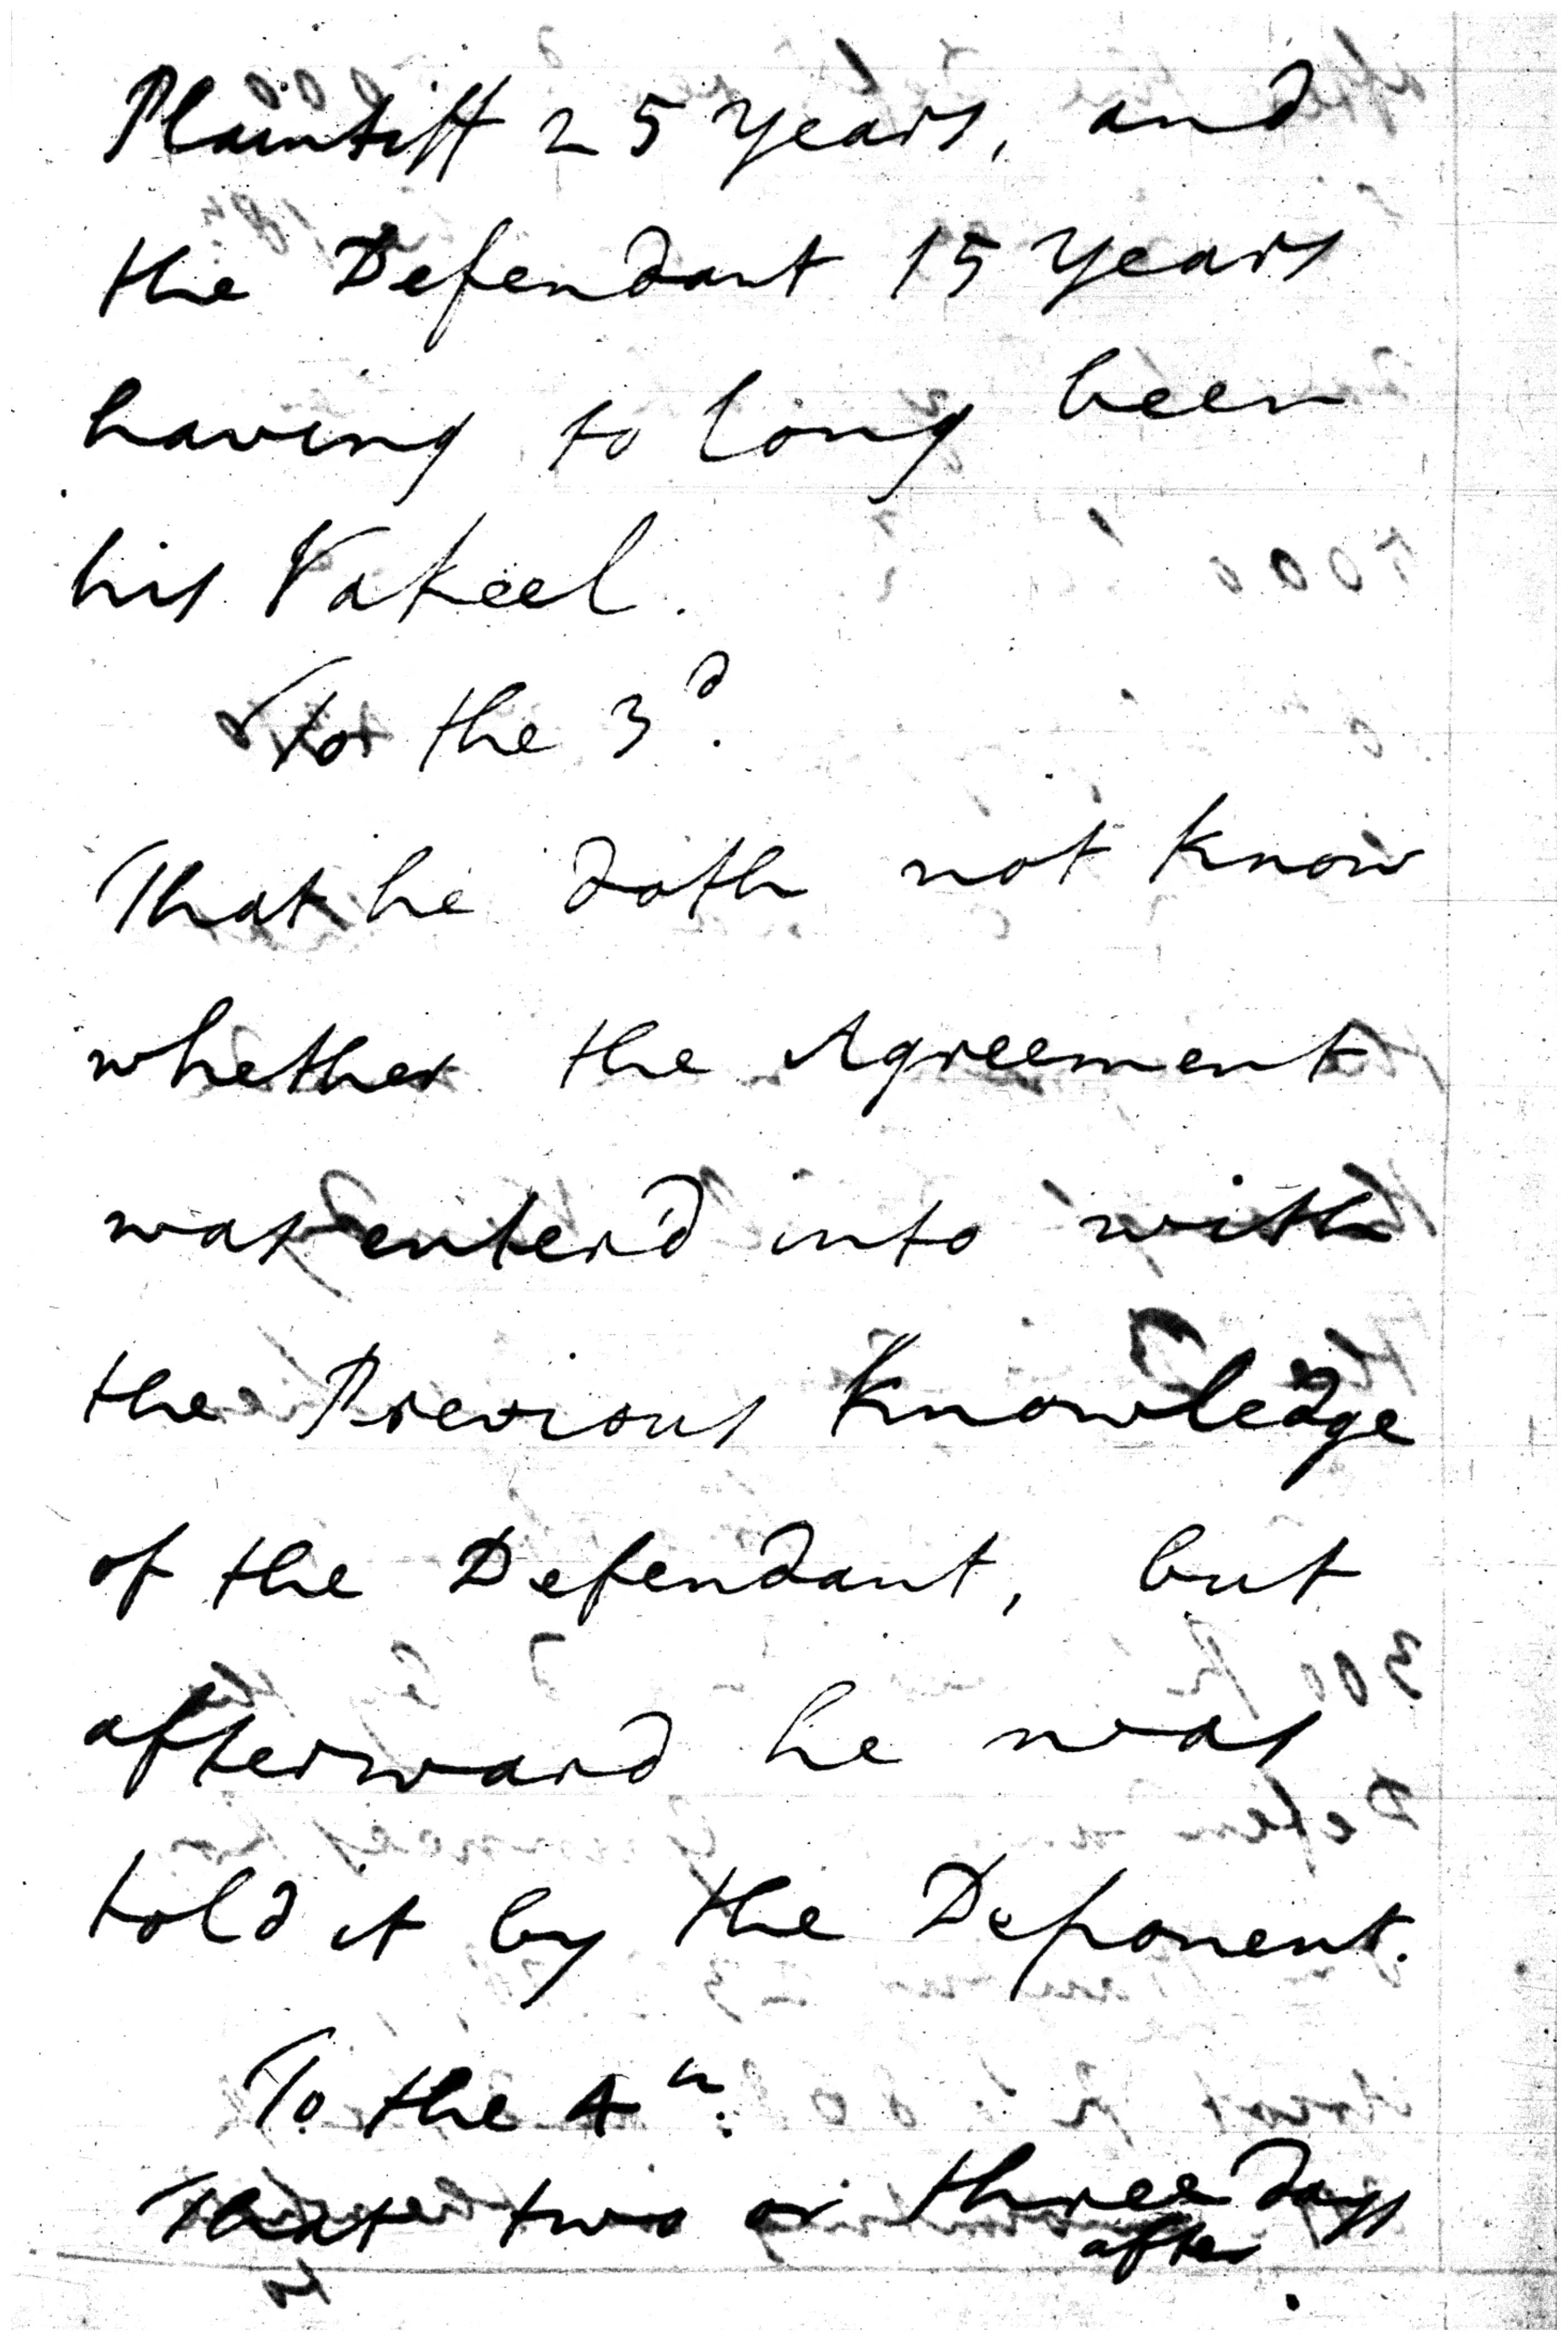 Plaintiff 25 years, and
the Defendant 15 years
having so long been
his Vakeel.
To the 3d.
That he doth not know
whether the Agreement
was enter'd into with
the Previous Knowledge
of the Defendant, but
afterward he was
told it by the Deponent.
To the 4th.
That two or three days
after